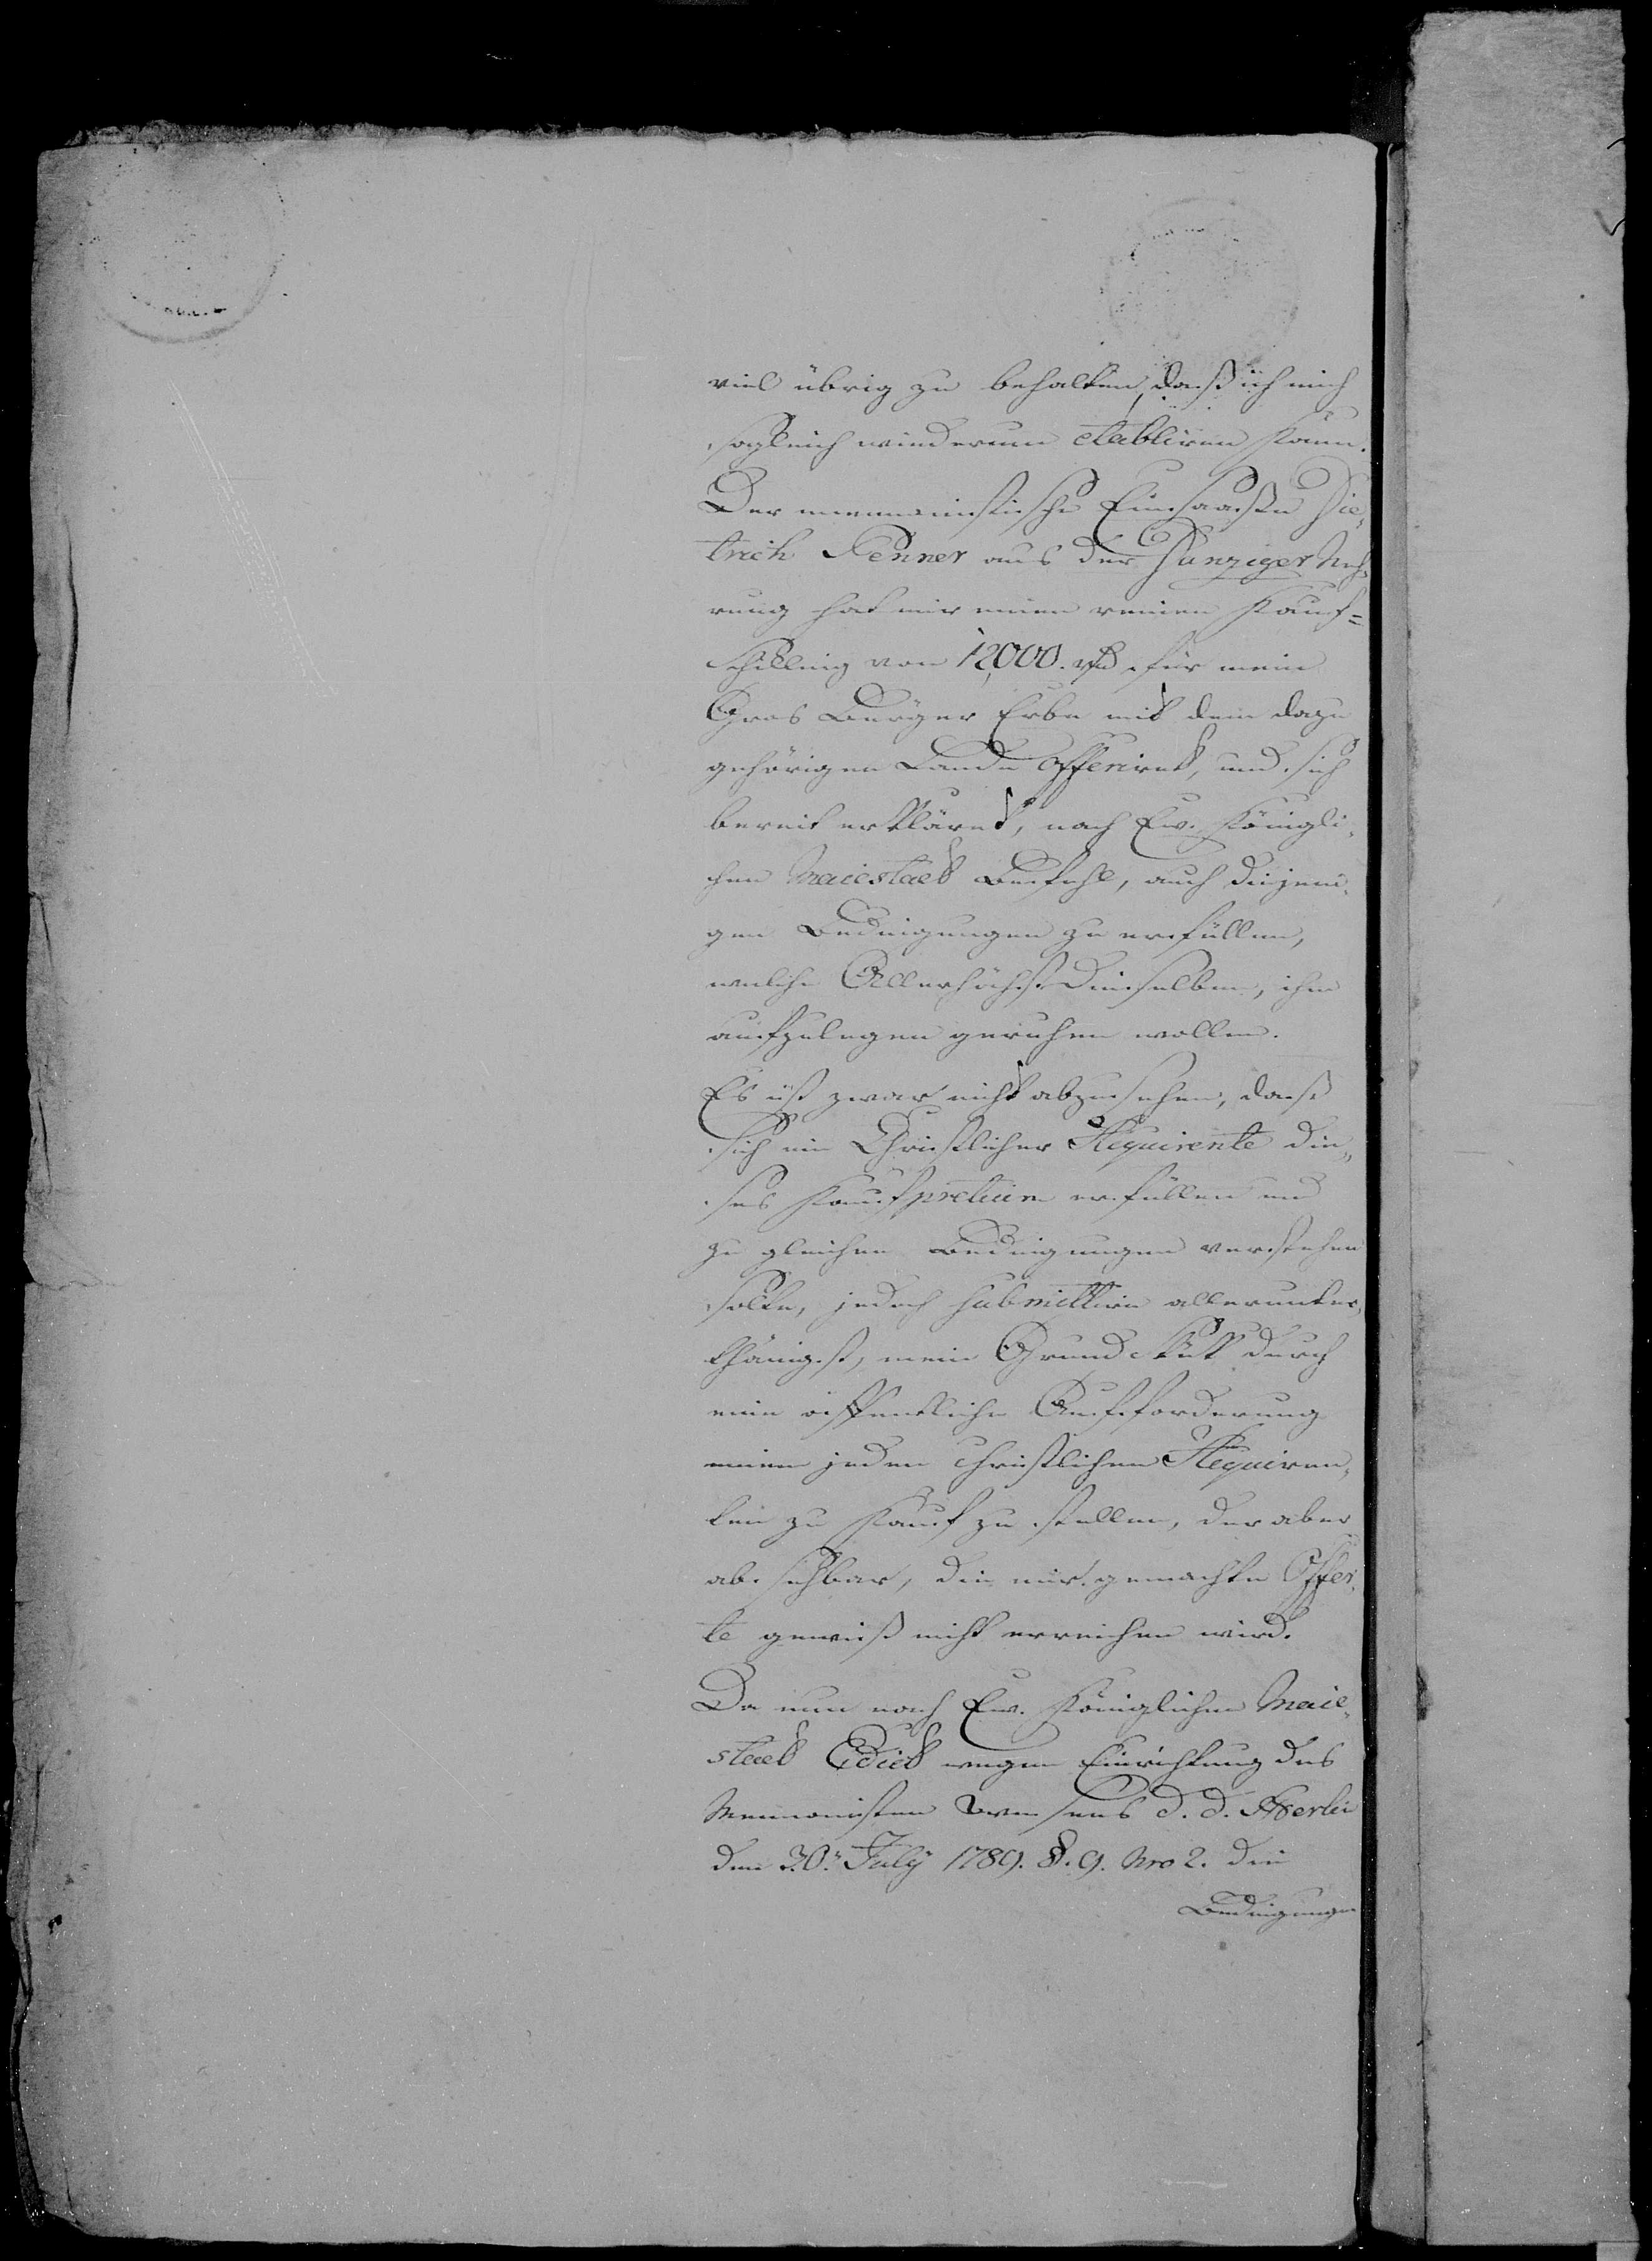 viel übrig zu behalten, daß ich mich
sogleich wiederum etabliren kann.
Der mennonistische Einsaaße Die¬
trich Penner aus der Danziger Neh¬
rung hat mir einen reinen Kauf=
schilling von 12,000. rth für mein
Gros Bürger Erbe mit dem dazu
gehörigen Lande offeriret, und sich
bereit erkläret, nach Ew. Königli¬
chen Maiestaet Befehl, auch diejeni¬
gen Bedingungen zu erfüllen,
welche Allerhöchst Dieselben, ihm
aufzulegen geruhen wollen.
Es ist zwar nicht abzusehen, daß
sich ein Christlicher Aequirente die¬
ses Kaufpretium erfüllen und
zu gleichen Bedingungen verstehen
solte, jedoch submittire allerunter¬
thänigst, mein Grundstük durch
eine öffentliche Aufforderung
einen jeden Christlichen Aequiren¬
ten zu Kauf zu stellen, der aber
absehbar, die mir gemachte Offer¬
te gewiß nicht erreichen wird.
Da nun nach Ew. Königlichen Maie¬
staet Edict wegen Einrichtung des
Mennonisten Wesens d. d. Berlin
den 30. July 1789. §. 9. Nro 2. die
Bedingungen